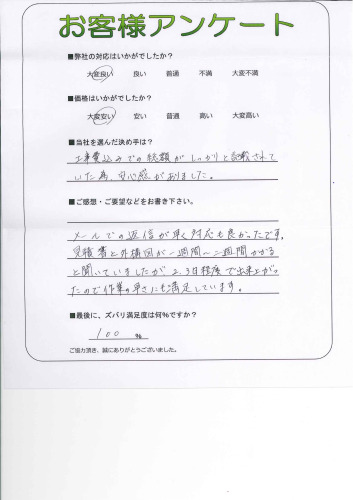 お客様アンケート
■弊社の対応はいかがでしたか？
大変良い 良い 普通 不満 大変不満
■価格はいかがでしたか？
大変安い 安い 普通 高い 大変高い
■当社を選んだ決め手は？
工事費込みでの総額がしっかりと記載されて
いた為、安心感がありました。
■ご感想・ご要望などをお書き下さい。
メールでの返信が早く対応も良かったです。
見積書と外構図が一週間～二週間かかる
と聞いていましたが2、3日程度で出来上がっ
たので作業の早さにも満足しています。
■最後に、ズバリ満足度は何%ですか？
100 %
ご協力頂き、誠にありがとうございました。